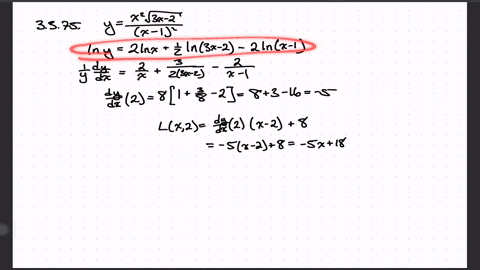 3.5.75. y = x²√(3x-2) / (x-1)²
ln y = 2 ln x + ½ ln(3x-2) - 2 ln(x-1)
1/y dy/dx = 2/x + 3/(2(3x-2)) - 2/(x-1)
dy/dx (2) = 8[1 + 3/8 - 2] = 8+3-16 = -5
L(x,2) = dy/dx (2) (x-2) + 8
= -5(x-2)+8 = -5x+18